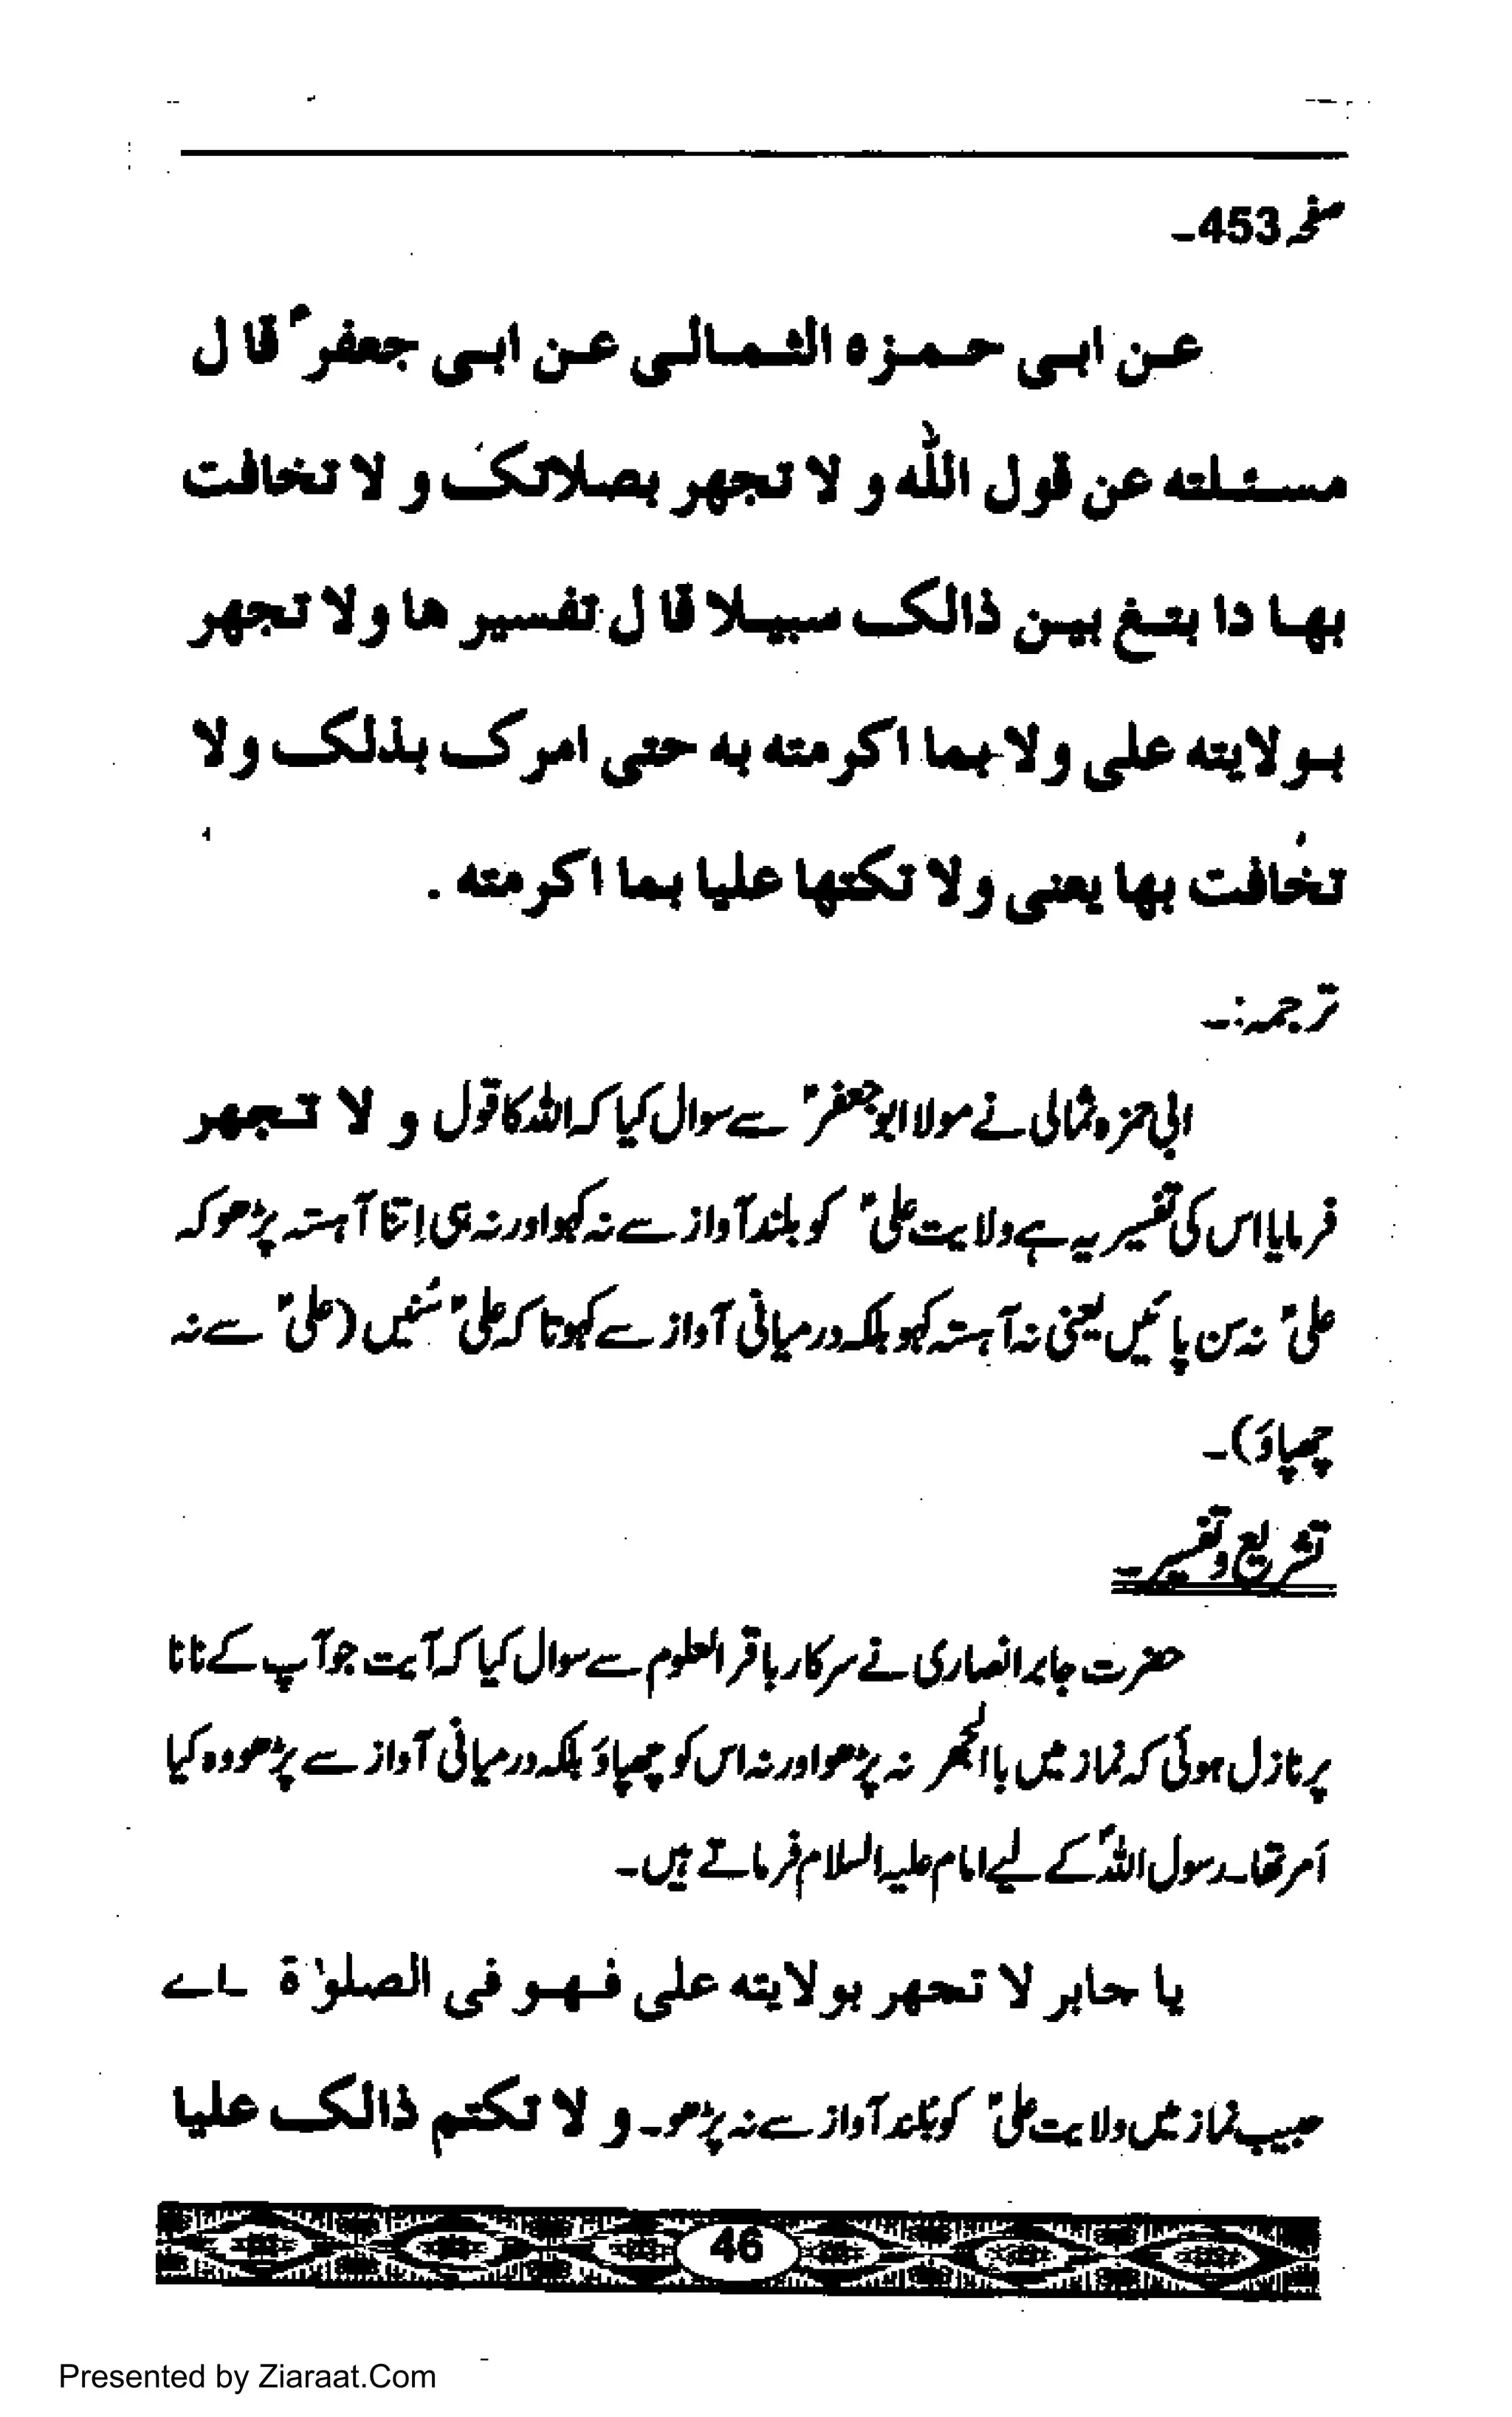 صفحہ 453-
عن ابی حمزہ الثمالی عن ابی جعفر ؑ قال
مسئلته عن قول الله و لا تجهر بصلاتک و لا تخافت
بها دا بتغ بین ذالک سبیلا قال تفسیر ها ولا تجهر
بولایته علی ولا بما اکرمته به حتی امرک بذلک ولا
تخافت بها یعنی ولا تکتها علیا بما اکرمته .
ترجمہ:-
ابی حمزہ ثمالی نے مولا ابو جعفر ؑ سے سوال کیا کہ اللہ کا قول و لا تجهر
فرمایا اس کی تفسیر یہ ہے ولایت علی ؑ کو بلند آواز سے نہ کہو اور نہ ہی اِتنا آہستہ پڑھو کہ
علی ؑ نہ سن پائیں یعنی نہ آہستہ کہو بلکہ درمیانی آواز سے کہو تا کہ علی ؑ سُنیں (علی ؑ سے نہ
چھپاوَ)-
تشریع و تفسیر-
حضرت جابر انصاری نے سرکار باقر العلوم سے سوال کیا کہ آیت جو آپ کے نانا
پر نازل ہوئی کہ نماز میں با الجھر نہ پڑھو اور نہ اس کو چھپاوَ بلکہ درمیانی آواز سے پڑھو وہ کیا
اَمر تھا-رسول اللہؐ کے لیے امام علیہ السلام فرماتے ہیں-
یا حابر لا تحهر بولایته علی فهو فی الصلوٰ ة اے
حبیب نماز میں ولایت علی ؑ کو بُلند آواز سے نہ پڑھو- و لا تکتم ذالک علیا
46
Presented by Ziaraat.Com